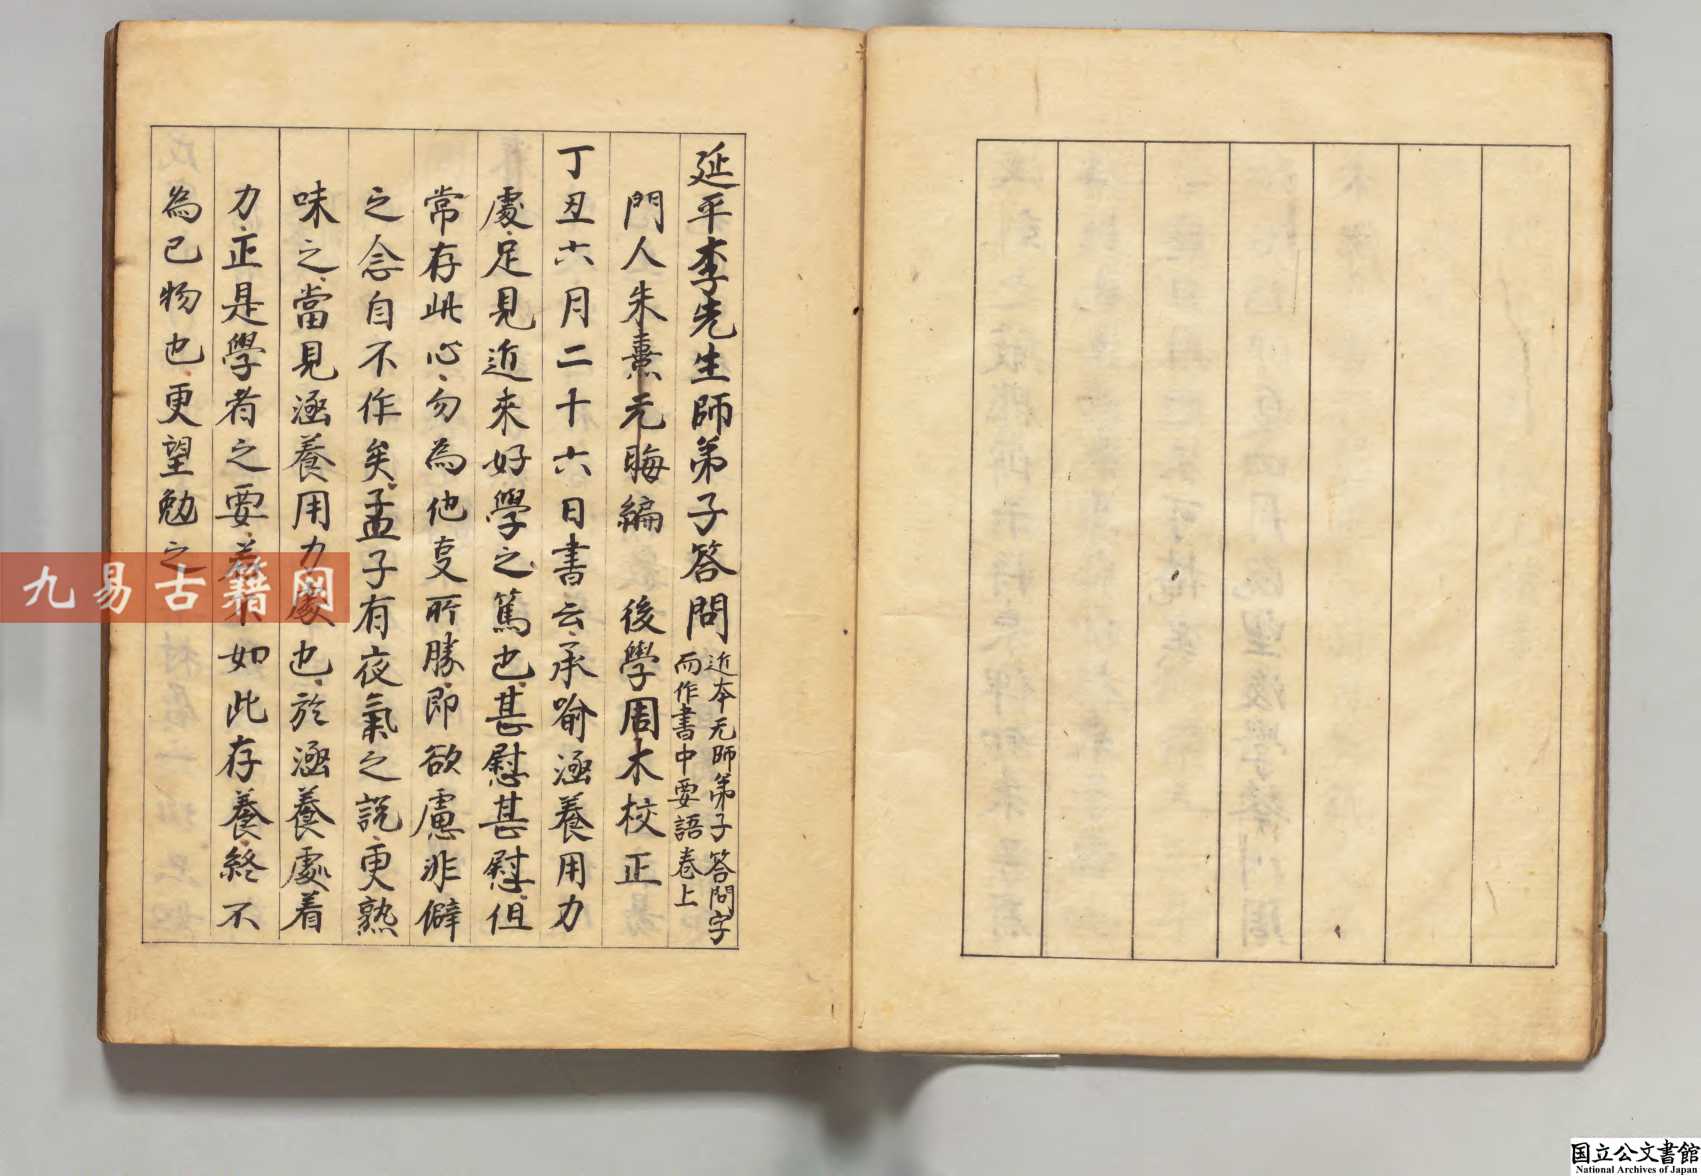 延平李先生師弟子答問近本无師弟子答問字
而作書中要語卷上
門人朱熹元晦編　後學周木校正
丁丑六月二十六日書云承喻涵養用力
處足見近來好學之篤也甚慰甚慰但
常存此心勿為他叓所勝即欲慮非僻
之念自不作矣孟子有夜氣之説更熟
味之當見涵養用力處也於涵養處着
力正是學者之要若不如此存養終不
為已物也更望勉之
九易古籍网
国立公文書館
National Archives of Japan